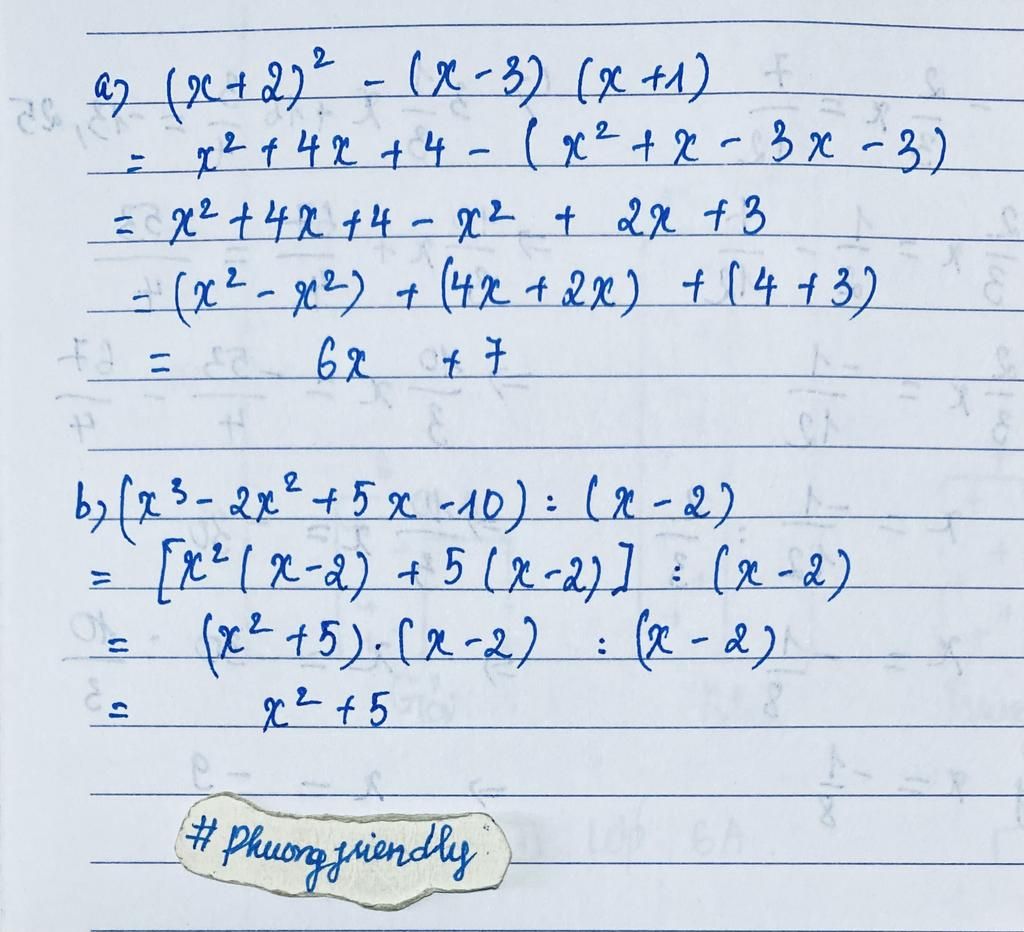 a) (x+2)² - (x-3) (x+1)
= x² + 4x + 4 - (x² + x - 3x - 3)
= x² + 4x + 4 - x² + 2x + 3
= (x² - x²) + (4x + 2x) + (4 + 3)
= 6x + 7
b) (x³ - 2x² + 5x - 10) : (x - 2)
= [x² (x-2) + 5 (x-2)] : (x - 2)
= (x² + 5) . (x - 2) : (x - 2)
= x² + 5
# Phuongfriendly